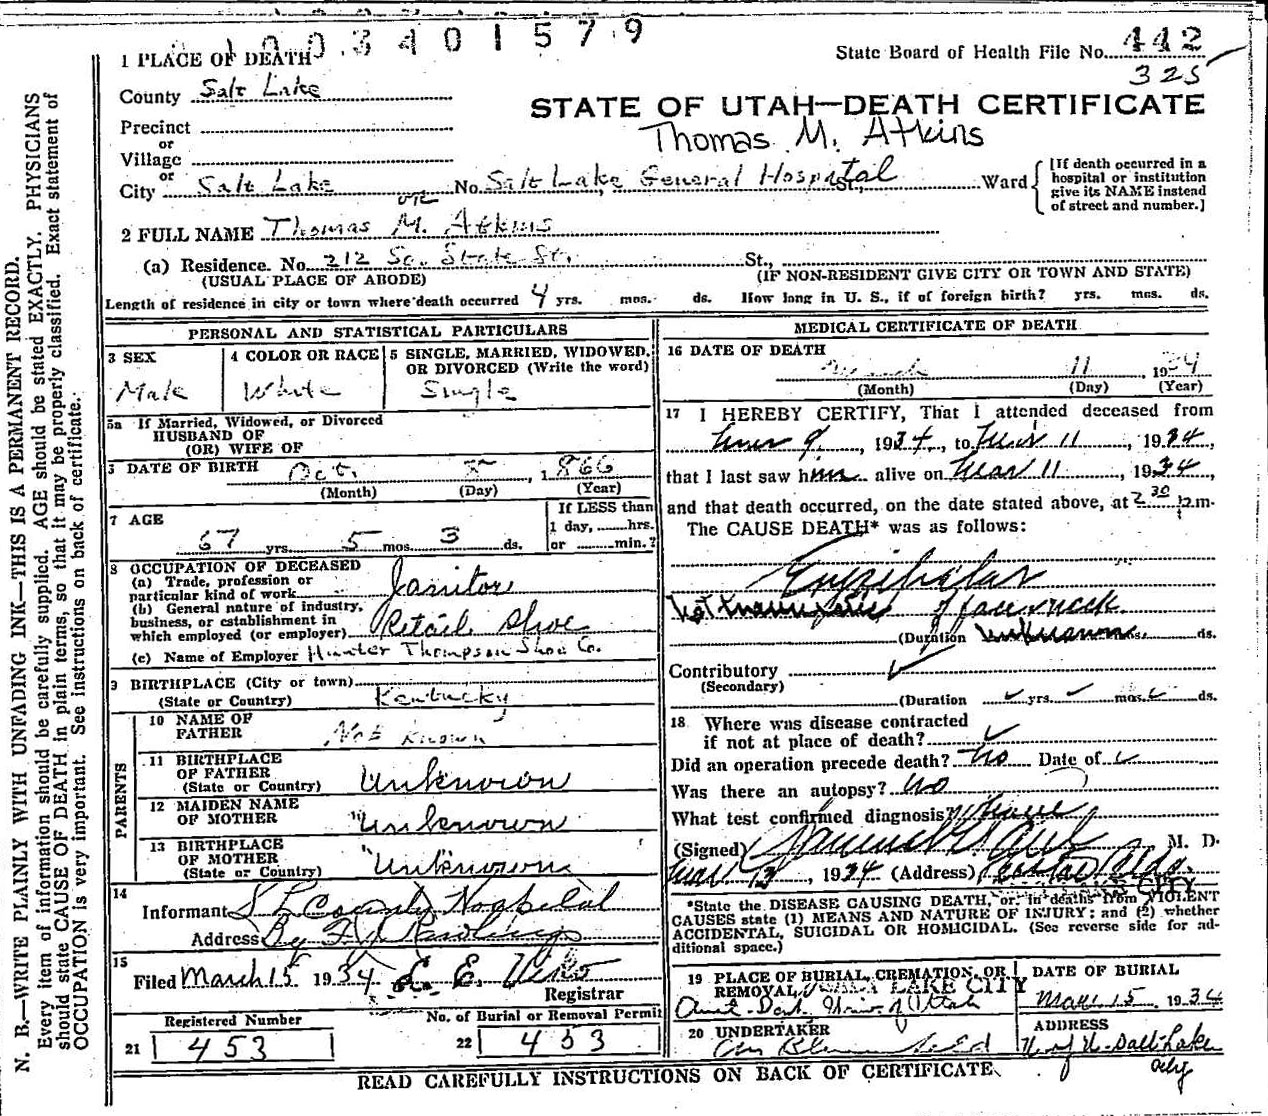 1003401579
1 PLACE OF DEATH
State Board of Health File No. 442
325
County Salt Lake
STATE OF UTAH—DEATH CERTIFICATE
Precinct
Thomas M. Atkins
or
Village
or
City Salt Lake No. Salt Lake General Hospital St., Ward
[If death occurred in a hospital or institution give its NAME instead of street and number.]
2 FULL NAME Thomas M. Atkins
(a) Residence. No. 212 So. State St. St.,
(USUAL PLACE OF ABODE) (IF NON-RESIDENT GIVE CITY OR TOWN AND STATE)
Length of residence in city or town where death occurred 4 yrs. mos. ds. How long in U. S., if of foreign birth? yrs. mos. ds.
PERSONAL AND STATISTICAL PARTICULARS
3 SEX 4 COLOR OR RACE 5 SINGLE, MARRIED, WIDOWED, OR DIVORCED (Write the word)
Male White Single
5a If Married, Widowed, or Divorced
HUSBAND OF
(OR) WIFE OF
DATE OF BIRTH Oct. 1866
(Month) (Day) (Year)
7 AGE
67 yrs. 5 mos. 3 ds.
If LESS than
1 day, hrs.
or min.?
8 OCCUPATION OF DECEASED
(a) Trade, profession or
particular kind of work Janitor
(b) General nature of industry,
business, or establishment in
which employed (or employer) Retail Shoe
(c) Name of Employer Hunter Thompson Shoe Co.
9 BIRTHPLACE (City or town)
(State or Country) Kentucky
PARENTS
10 NAME OF
FATHER Not known
11 BIRTHPLACE
OF FATHER
(State or Country) Unknown
12 MAIDEN NAME
OF MOTHER "Unknown
13 BIRTHPLACE
OF MOTHER
(State or Country) "Unknown
14
Informant S L County Hospital
Address By
15
Filed March 15 1934
Registrar
Registered Number No. of Burial or Removal Permit
21 453 22 453
MEDICAL CERTIFICATE OF DEATH
16 DATE OF DEATH
March 11, 1934
(Month) (Day) (Year)
17 I HEREBY CERTIFY, That I attended deceased from
9, 1934, to Mar 11, 1934,
that I last saw him alive on Mar 11, 1934
and that death occurred, on the date stated above, at 2 30 p.m.
The CAUSE DEATH* was as follows:
Erysipelas
of face & neck
(Duration unknown ds.
Contributory
(Secondary)
(Duration yrs. mos. ds.
18 Where was disease contracted
if not at place of death?
Did an operation precede death? No Date of
Was there an autopsy? No
What test confirmed diagnosis?
(Signed) M. D.
Mar, 1934 (Address)
*State the DISEASE CAUSING DEATH, or, in deaths from VIOLENT
CAUSES state (1) MEANS AND NATURE OF INJURY; and (2) whether
ACCIDENTAL, SUICIDAL OR HOMICIDAL. (See reverse side for ad-
ditional space.)
19 PLACE OF BURIAL, CREMATION, OR REMOVAL DATE OF BURIAL
SALT LAKE CITY
Anat. Dept. Univ. of Utah Mar. 15 1934
20 UNDERTAKER ADDRESS
U of U. Salt Lake
City
READ CAREFULLY INSTRUCTIONS ON BACK OF CERTIFICATE
N. B.—WRITE PLAINLY WITH UNFADING INK—THIS IS A PERMANENT RECORD.
Every item of information should be carefully supplied. AGE should be stated EXACTLY. PHYSICIANS
should state CAUSE OF DEATH in plain terms, so that it may be properly classified. Exact statement of
OCCUPATION is very important. See instructions on back of certificate.